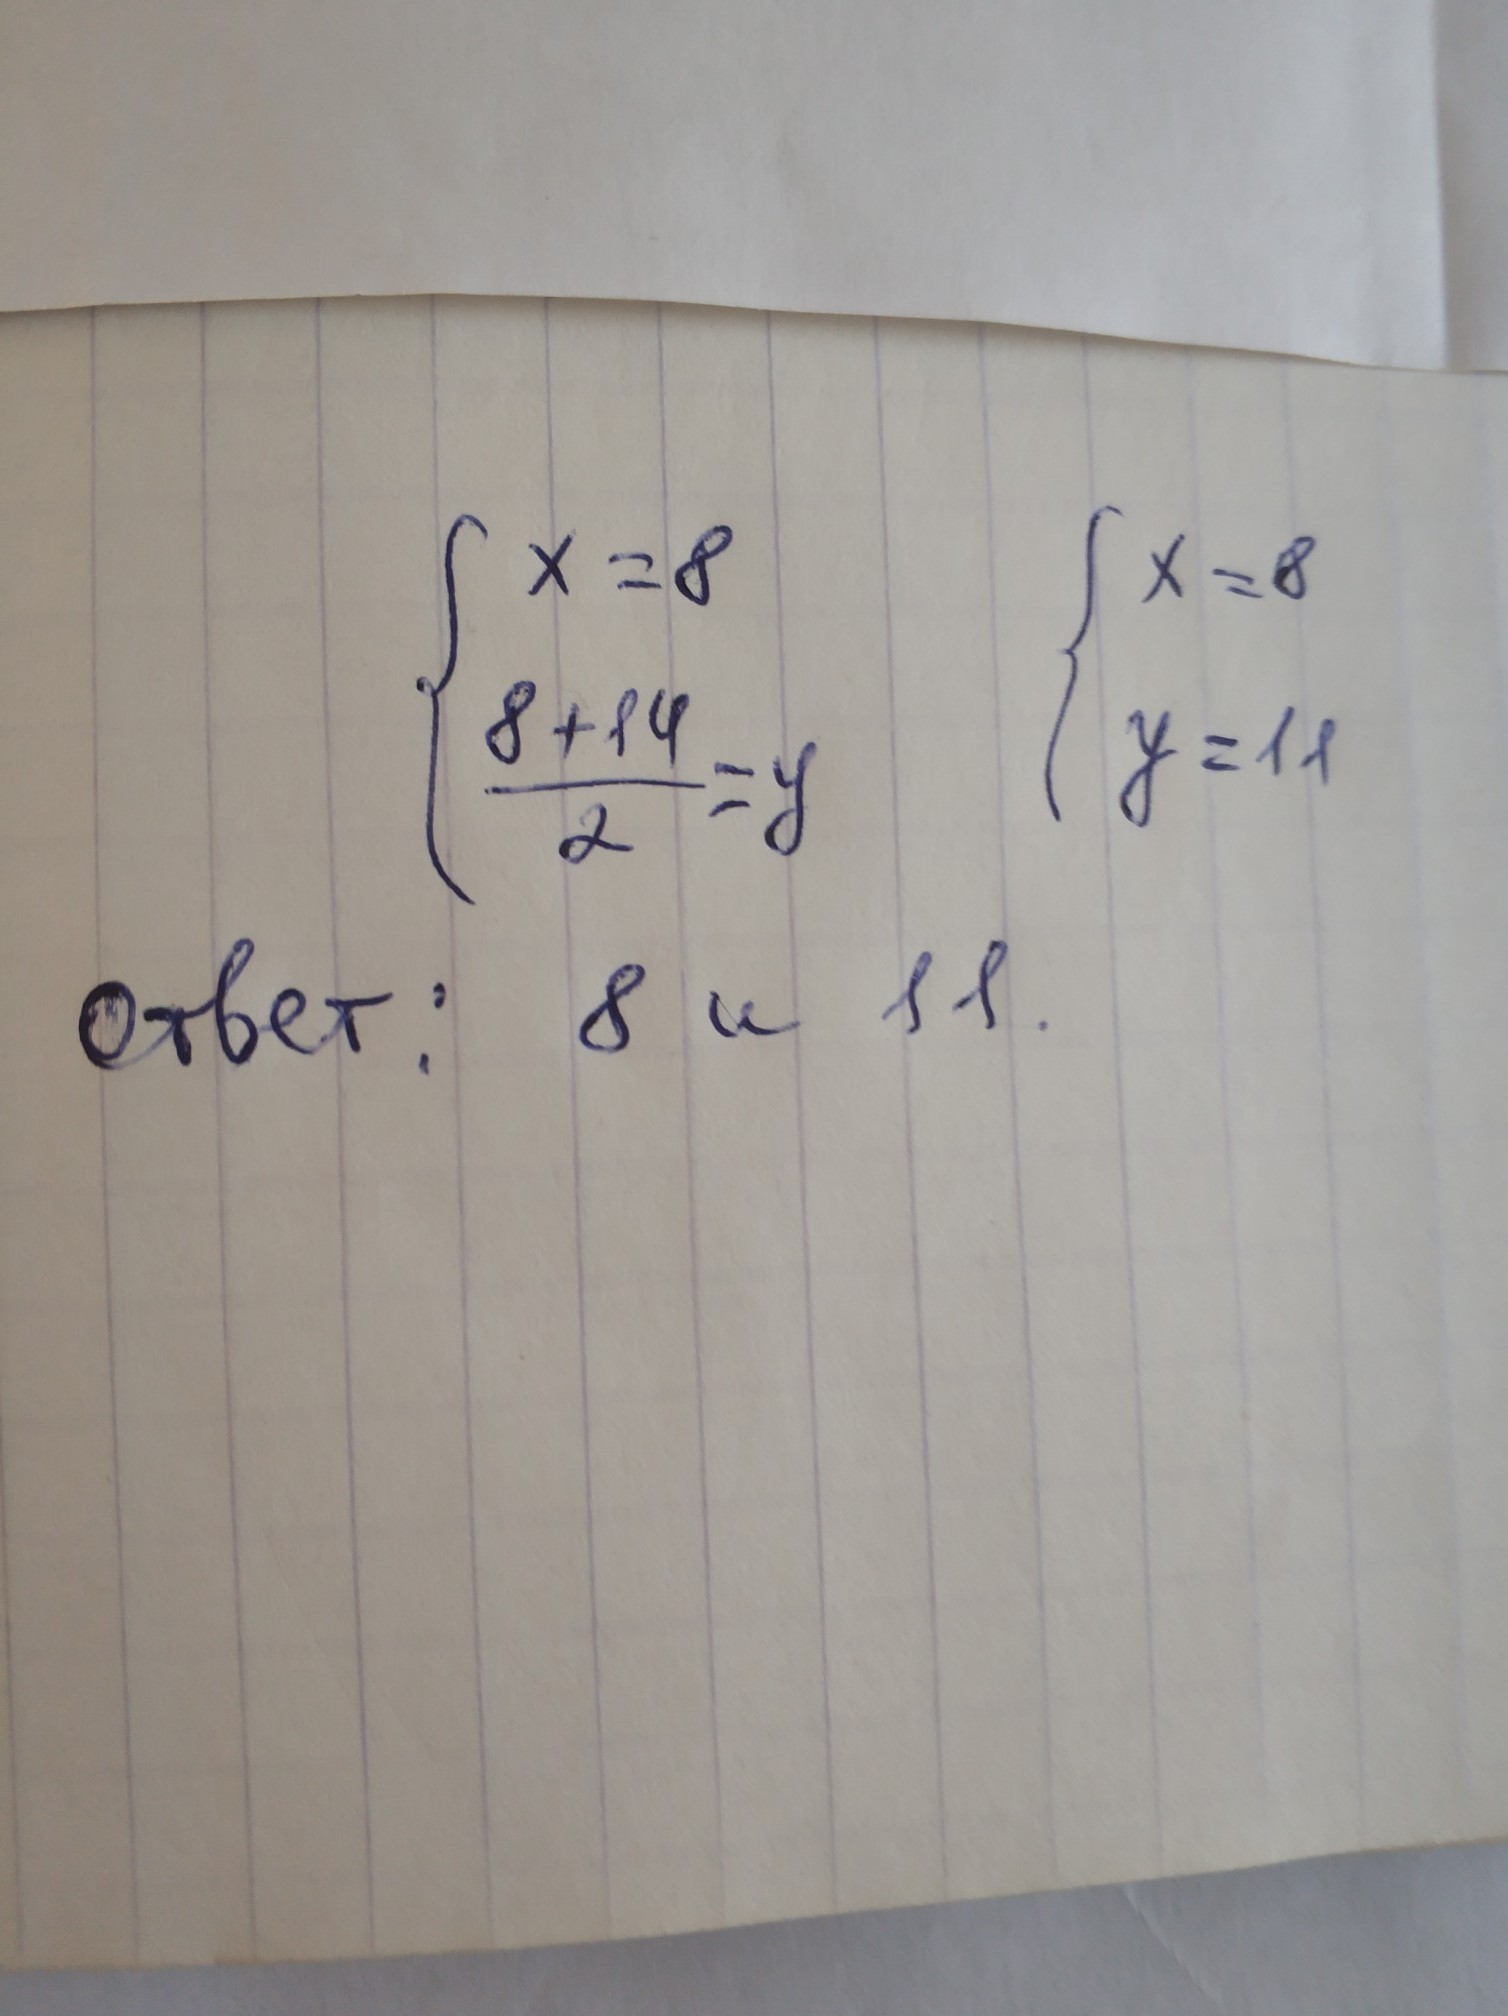 x = 8 x = 8
8 + 14 / 2 = y y = 11
Ответ: 8 и 11.